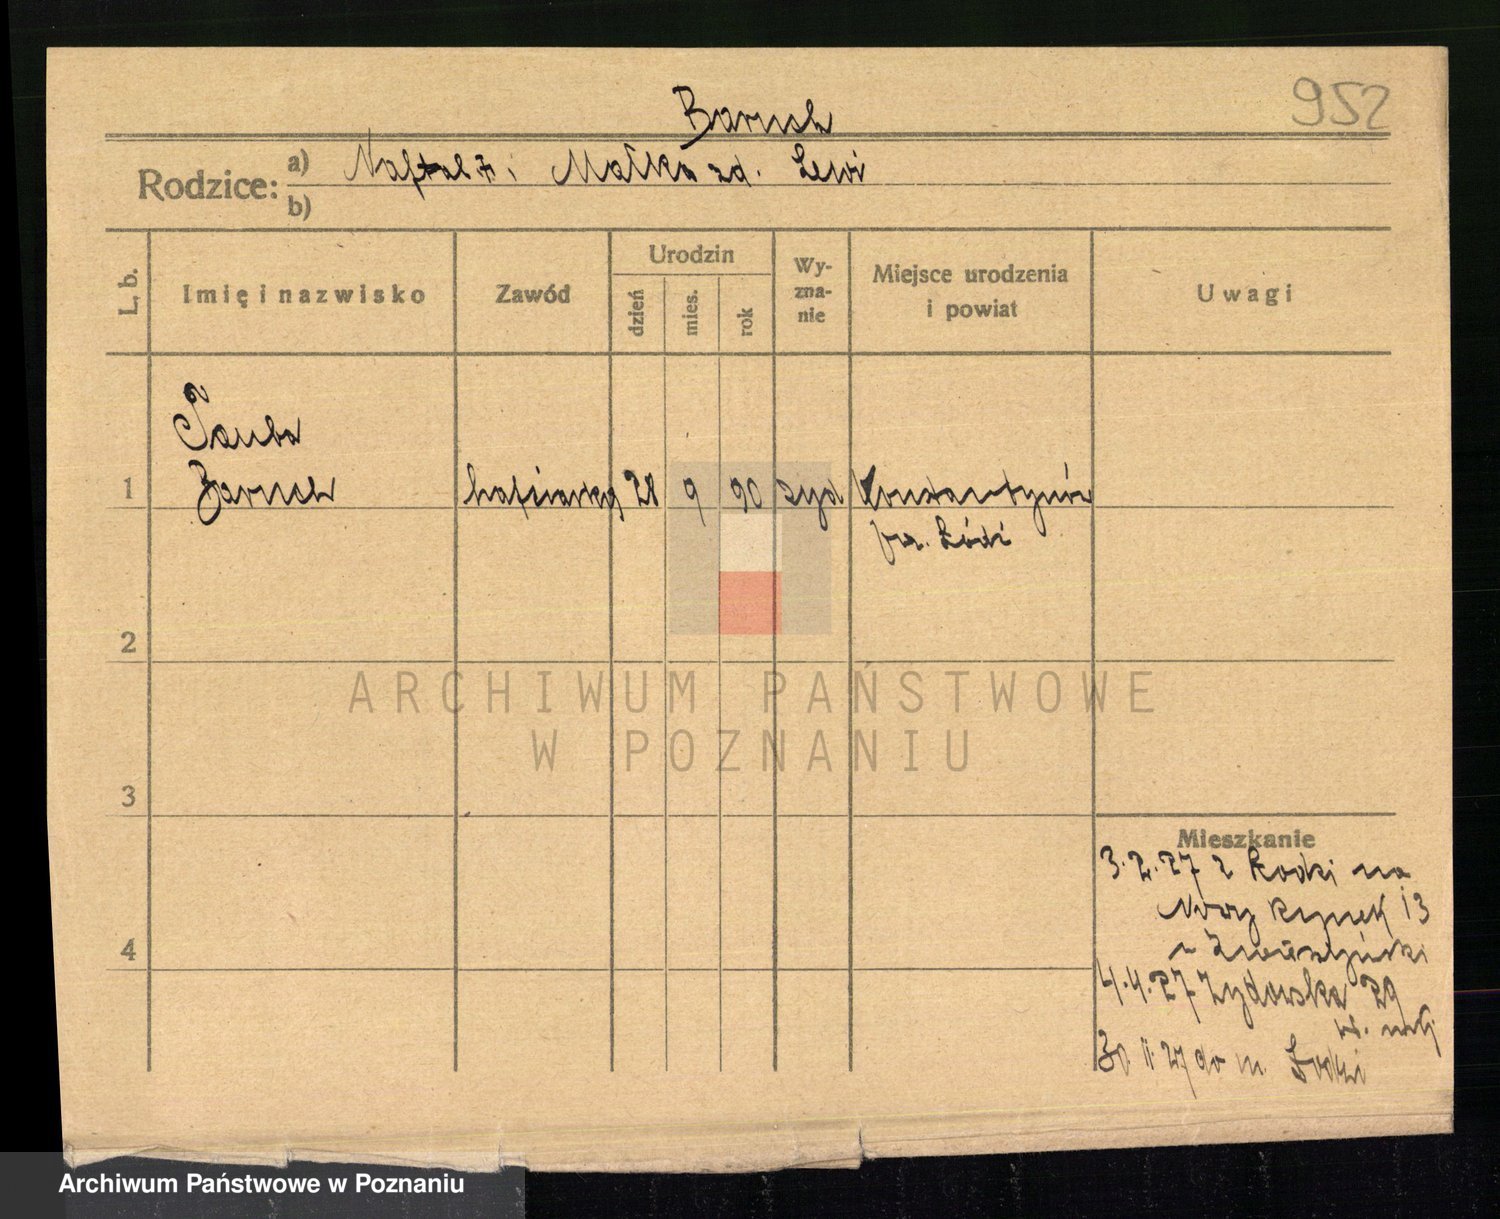 952
Baruch
Rodzice:
a) Naftal i Małka zd. Lewi
b)
L. b.
Imię i nazwisko
Zawód
Urodzin
dzień
mies.
rok
Wy-
zna-
nie
Miejsce urodzenia
i powiat
Uwagi
Tauba
1 Baruch hafciarka 28 9 90 żyd Konstantynów
pow. Łódź
2
ARCHIWUM PAŃSTWOWE
W POZNANIU
3
4
Mieszkanie
3.2.27 z Łodzi na
Nowy Rynek 13
4.4.27 Żydowska 29
30.11.27 do m. Łodzi
Archiwum Państwowe w Poznaniu